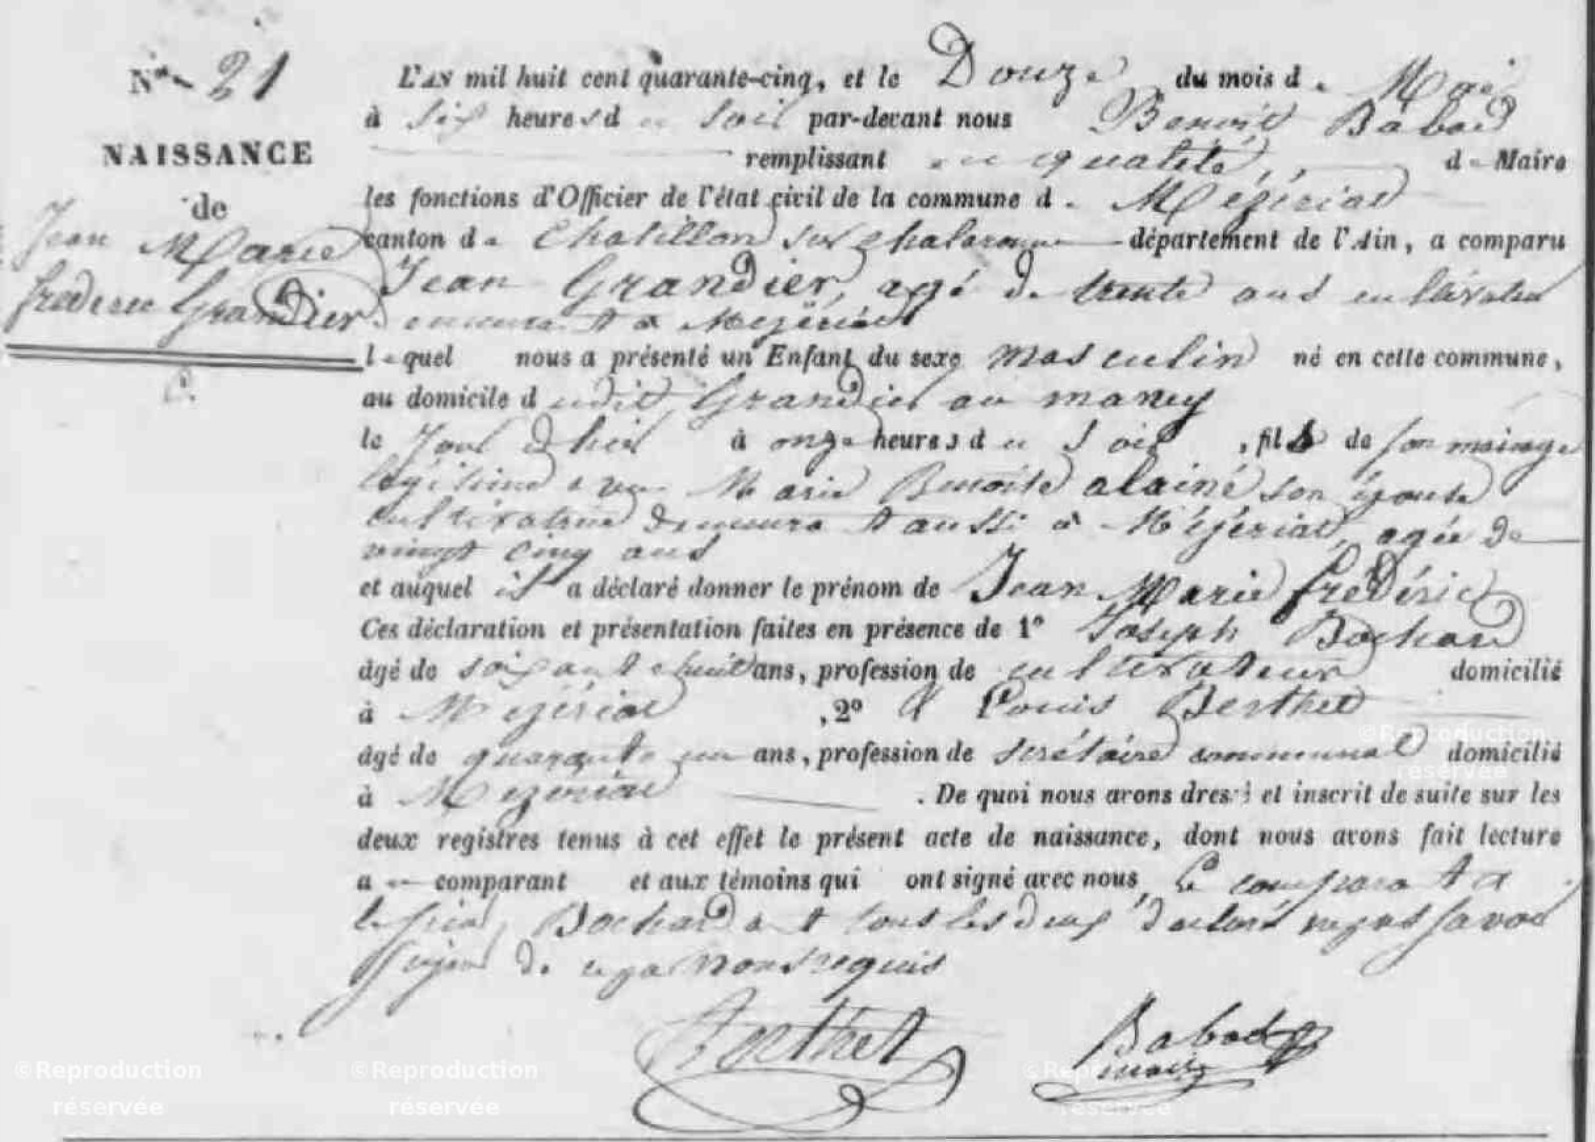 N° 21
NAISSANCE
de
Jean Marie
frederic Grandier
L'AN mil huit cent quarante-cinq, et le Douze du mois de Mai
à six heures du soir par-devant nous Benoit Babad
remplissant en qualité, de Maire
les fonctions d'Officier de l'état civil de la commune de Mézériat
canton de Chatillon sur chalaronne département de l'Ain, a comparu
Jean Grandier, agé de trente ans cultivateur
demeurant à Mezériat
lequel nous a présenté un Enfant du sexe masculin né en cette commune,
au domicile dudit Grandier au maney
le jour d'hier à onze heures du soir, fils de son mariage
légitime avec Marie Benoite alainé son épouse
cultivatrice demeurant aussi à Mézériat, agée de
vingt cinq ans
et auquel il a déclaré donner le prénom de Jean Marie frédéric
Ces déclaration et présentation faites en présence de 1° Joseph Bochard
âgé de soixante huit ans, profession de cultivateur domicilié
à Mezériat, 2° & Louis Berthet
âgé de quarante un ans, profession de secrétaire communal domicilié
à Mezériat. De quoi nous avons dressé et inscrit de suite sur les
deux registres tenus à cet effet le présent acte de naissance, dont nous avons fait lecture
au comparant et aux témoins qui ont signé avec nous, le comparant et
Bochard ont tous les deux déclaré ne pas savoir
signer de ce requis
Berthet
Babad
maire
©Reproduction
réservée
©Reproduction
réservée
©Reproduction
réservée
©Reproduction
réservée